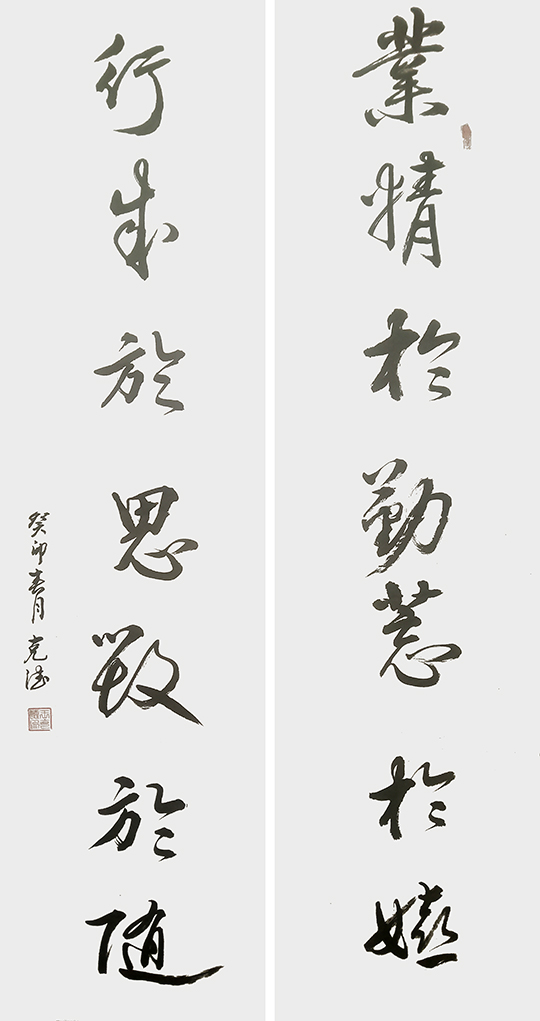 業精於勤荒於嬉
行成於思毀於隨
癸卯春月 克德